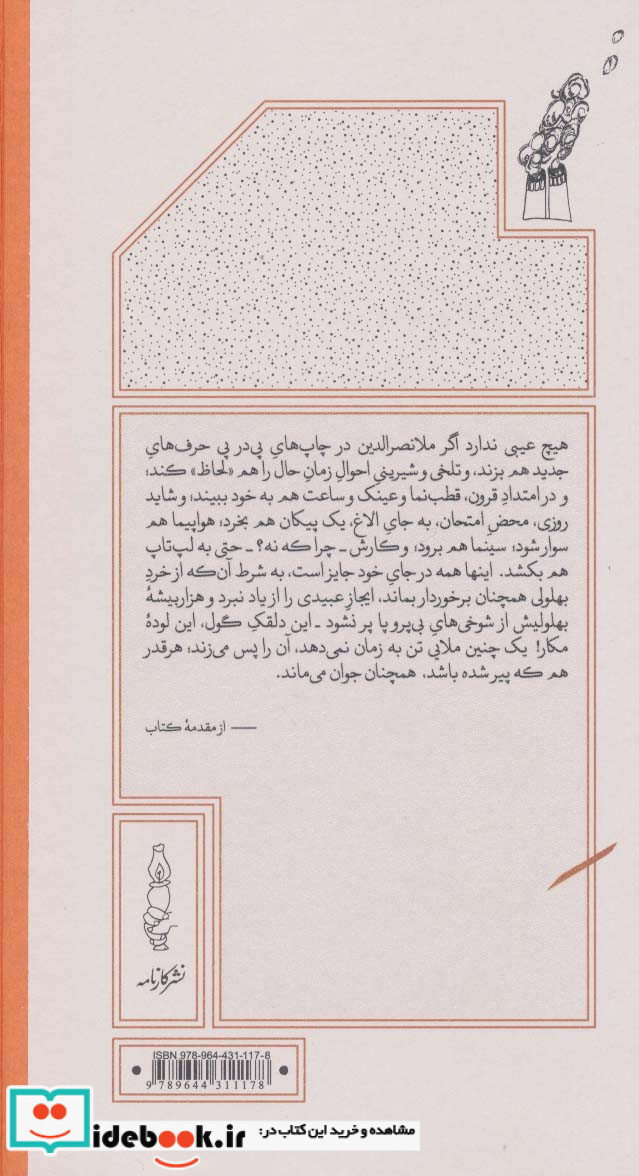 هیچ عیبی ندارد اگر ملانصرالدین در چاپ‌هایِ پی‌در پی حرف‌هایِ
جدید هم بزند، و تلخی و شیرینیِ احوالِ زمانِ حال را هم «لحاظ» کند؛
و در امتدادِ قرون، قطب‌نما و عینک و ساعت هم به خود ببیند؛ و شاید
روزی، محضِ امتحان، به جایِ الاغ، یک پیکان هم بخرد؛ هواپیما هم
سوار شود؛ سینما هم برود؛ و کارش ـ چرا که نه؟ ـ حتی به لپ‌تاپ
هم بکشد. اینها همه در جایِ خود جایز است، به شرط آن‌که از خردِ
بهلولی همچنان برخوردار بماند، ایجازِ عبیدی را از یاد نبرد و هزاربیشهٔ
بهلولیش از شوخی‌هایِ بی‌پر و پا پر نشود ـ این دلقکِ گول، این لودهٔ
مکار! یک چنین ملایی تن به زمان نمی‌دهد، آن را پس می‌زند؛ هرقدر
هم که پیر شده باشد، همچنان جوان می‌ماند.
— از مقدمهٔ کتاب
نشر کارنامه
ISBN 978-964-431-117-8
9 789644 311178
مشاهده و خرید این کتاب در:
idebook.ir